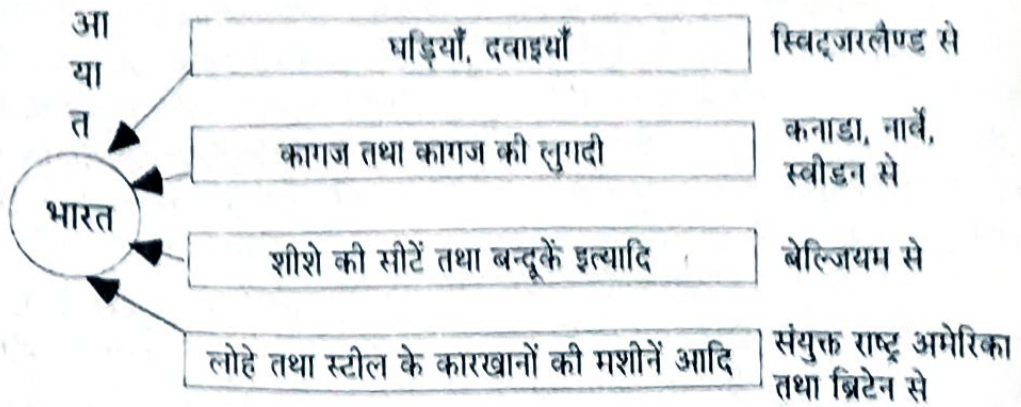 आ
या
त
घड़ियाँ, दवाइयाँ
स्विट्जरलैण्ड से
कागज तथा कागज की लुगदी
कनाडा, नार्वे,
स्वीडन से
भारत
शीशे की सीटें तथा बन्दूकें इत्यादि
बेल्जियम से
लोहे तथा स्टील के कारखानों की मशीनें आदि
संयुक्त राष्ट्र अमेरिका
तथा ब्रिटेन से